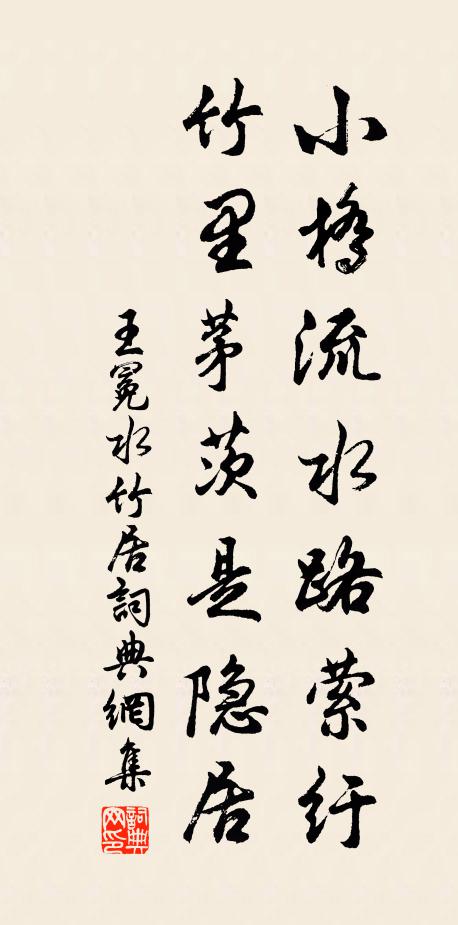 小橋流水路縈紆
竹里茅茨是隐居
王冕水竹居詞典網集
詞典网印